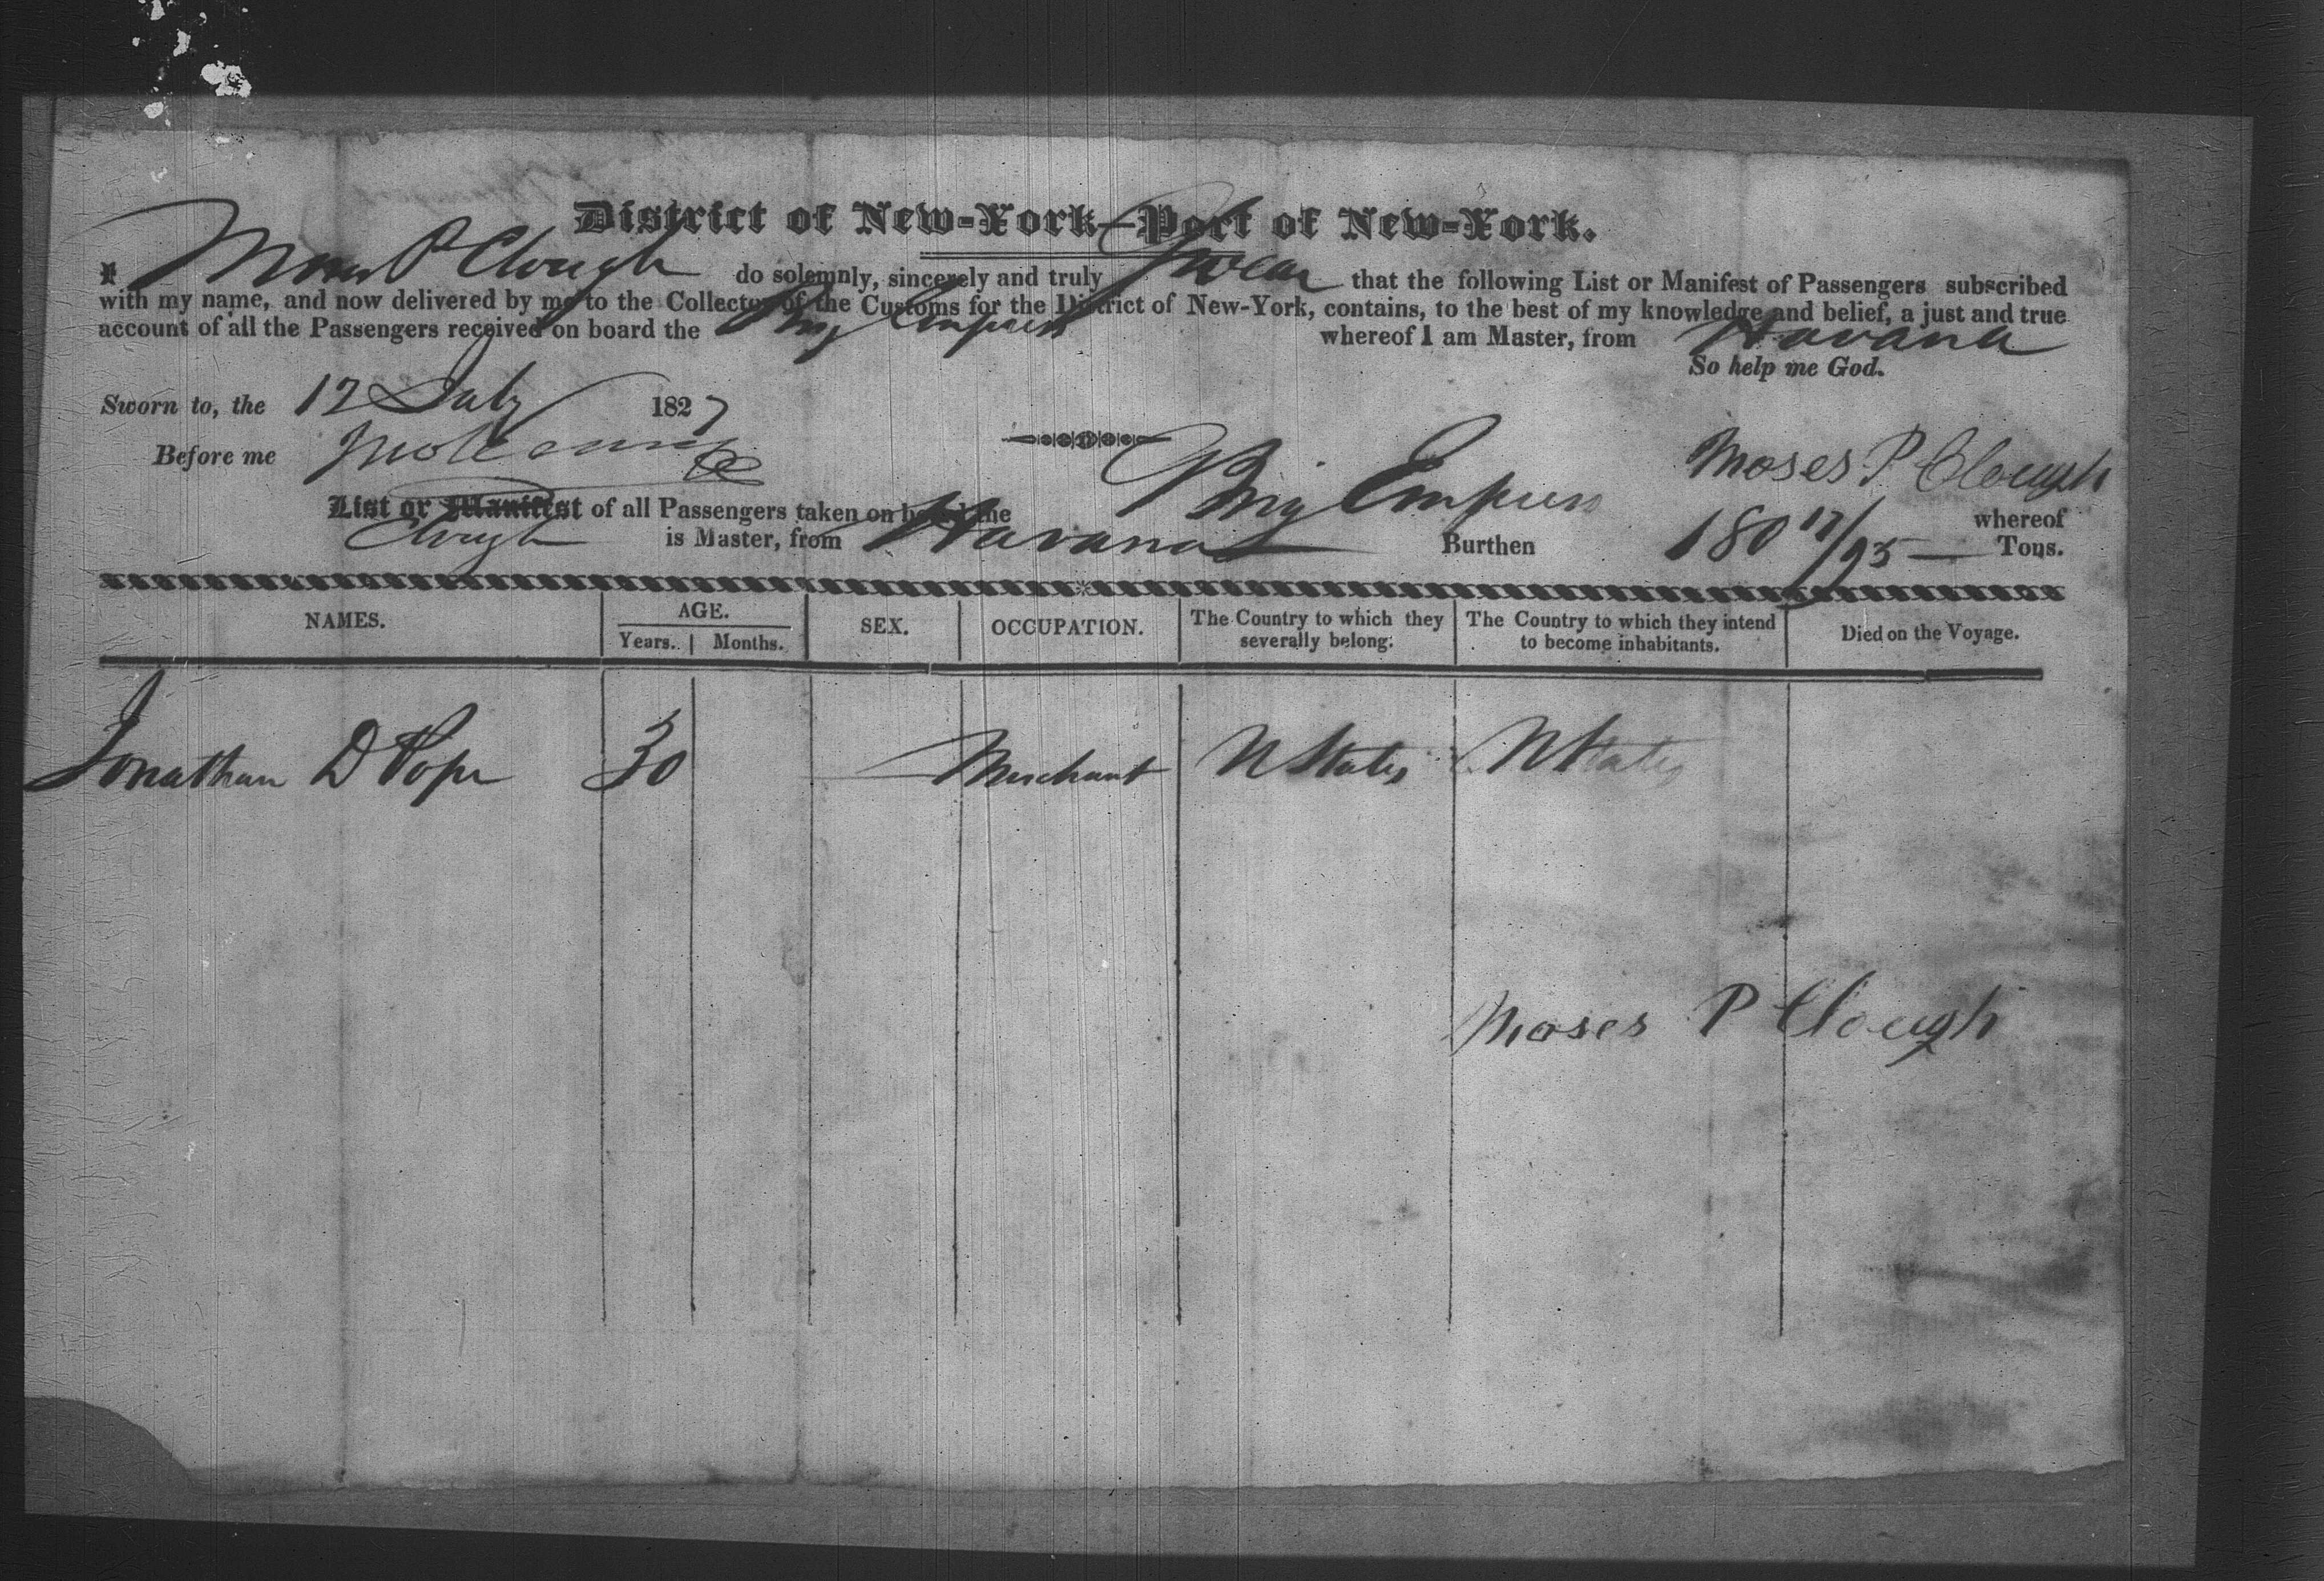 District of New-York—Port of New-York.
I Moses P Clough do solemnly, sincerely and truly Swear that the following List or Manifest of Passengers subscribed
with my name, and now delivered by me to the Collector of the Customs for the District of New-York, contains, to the best of my knowledge and belief, a just and true
account of all the Passengers received on board the Brig Empress whereof I am Master, from Havana
So help me God.
Sworn to, the 12 July 1827
Before me
Moses P Clough
List or Manifest of all Passengers taken on board the Brig Empress whereof
Clough is Master, from Havana Burthen 180 17/95 Tons.
NAMES. AGE. Years. Months. SEX. OCCUPATION. The Country to which they severally belong. The Country to which they intend to become inhabitants. Died on the Voyage.
Jonathan D Pope 30 — Merchant U States U States
Moses P Clough